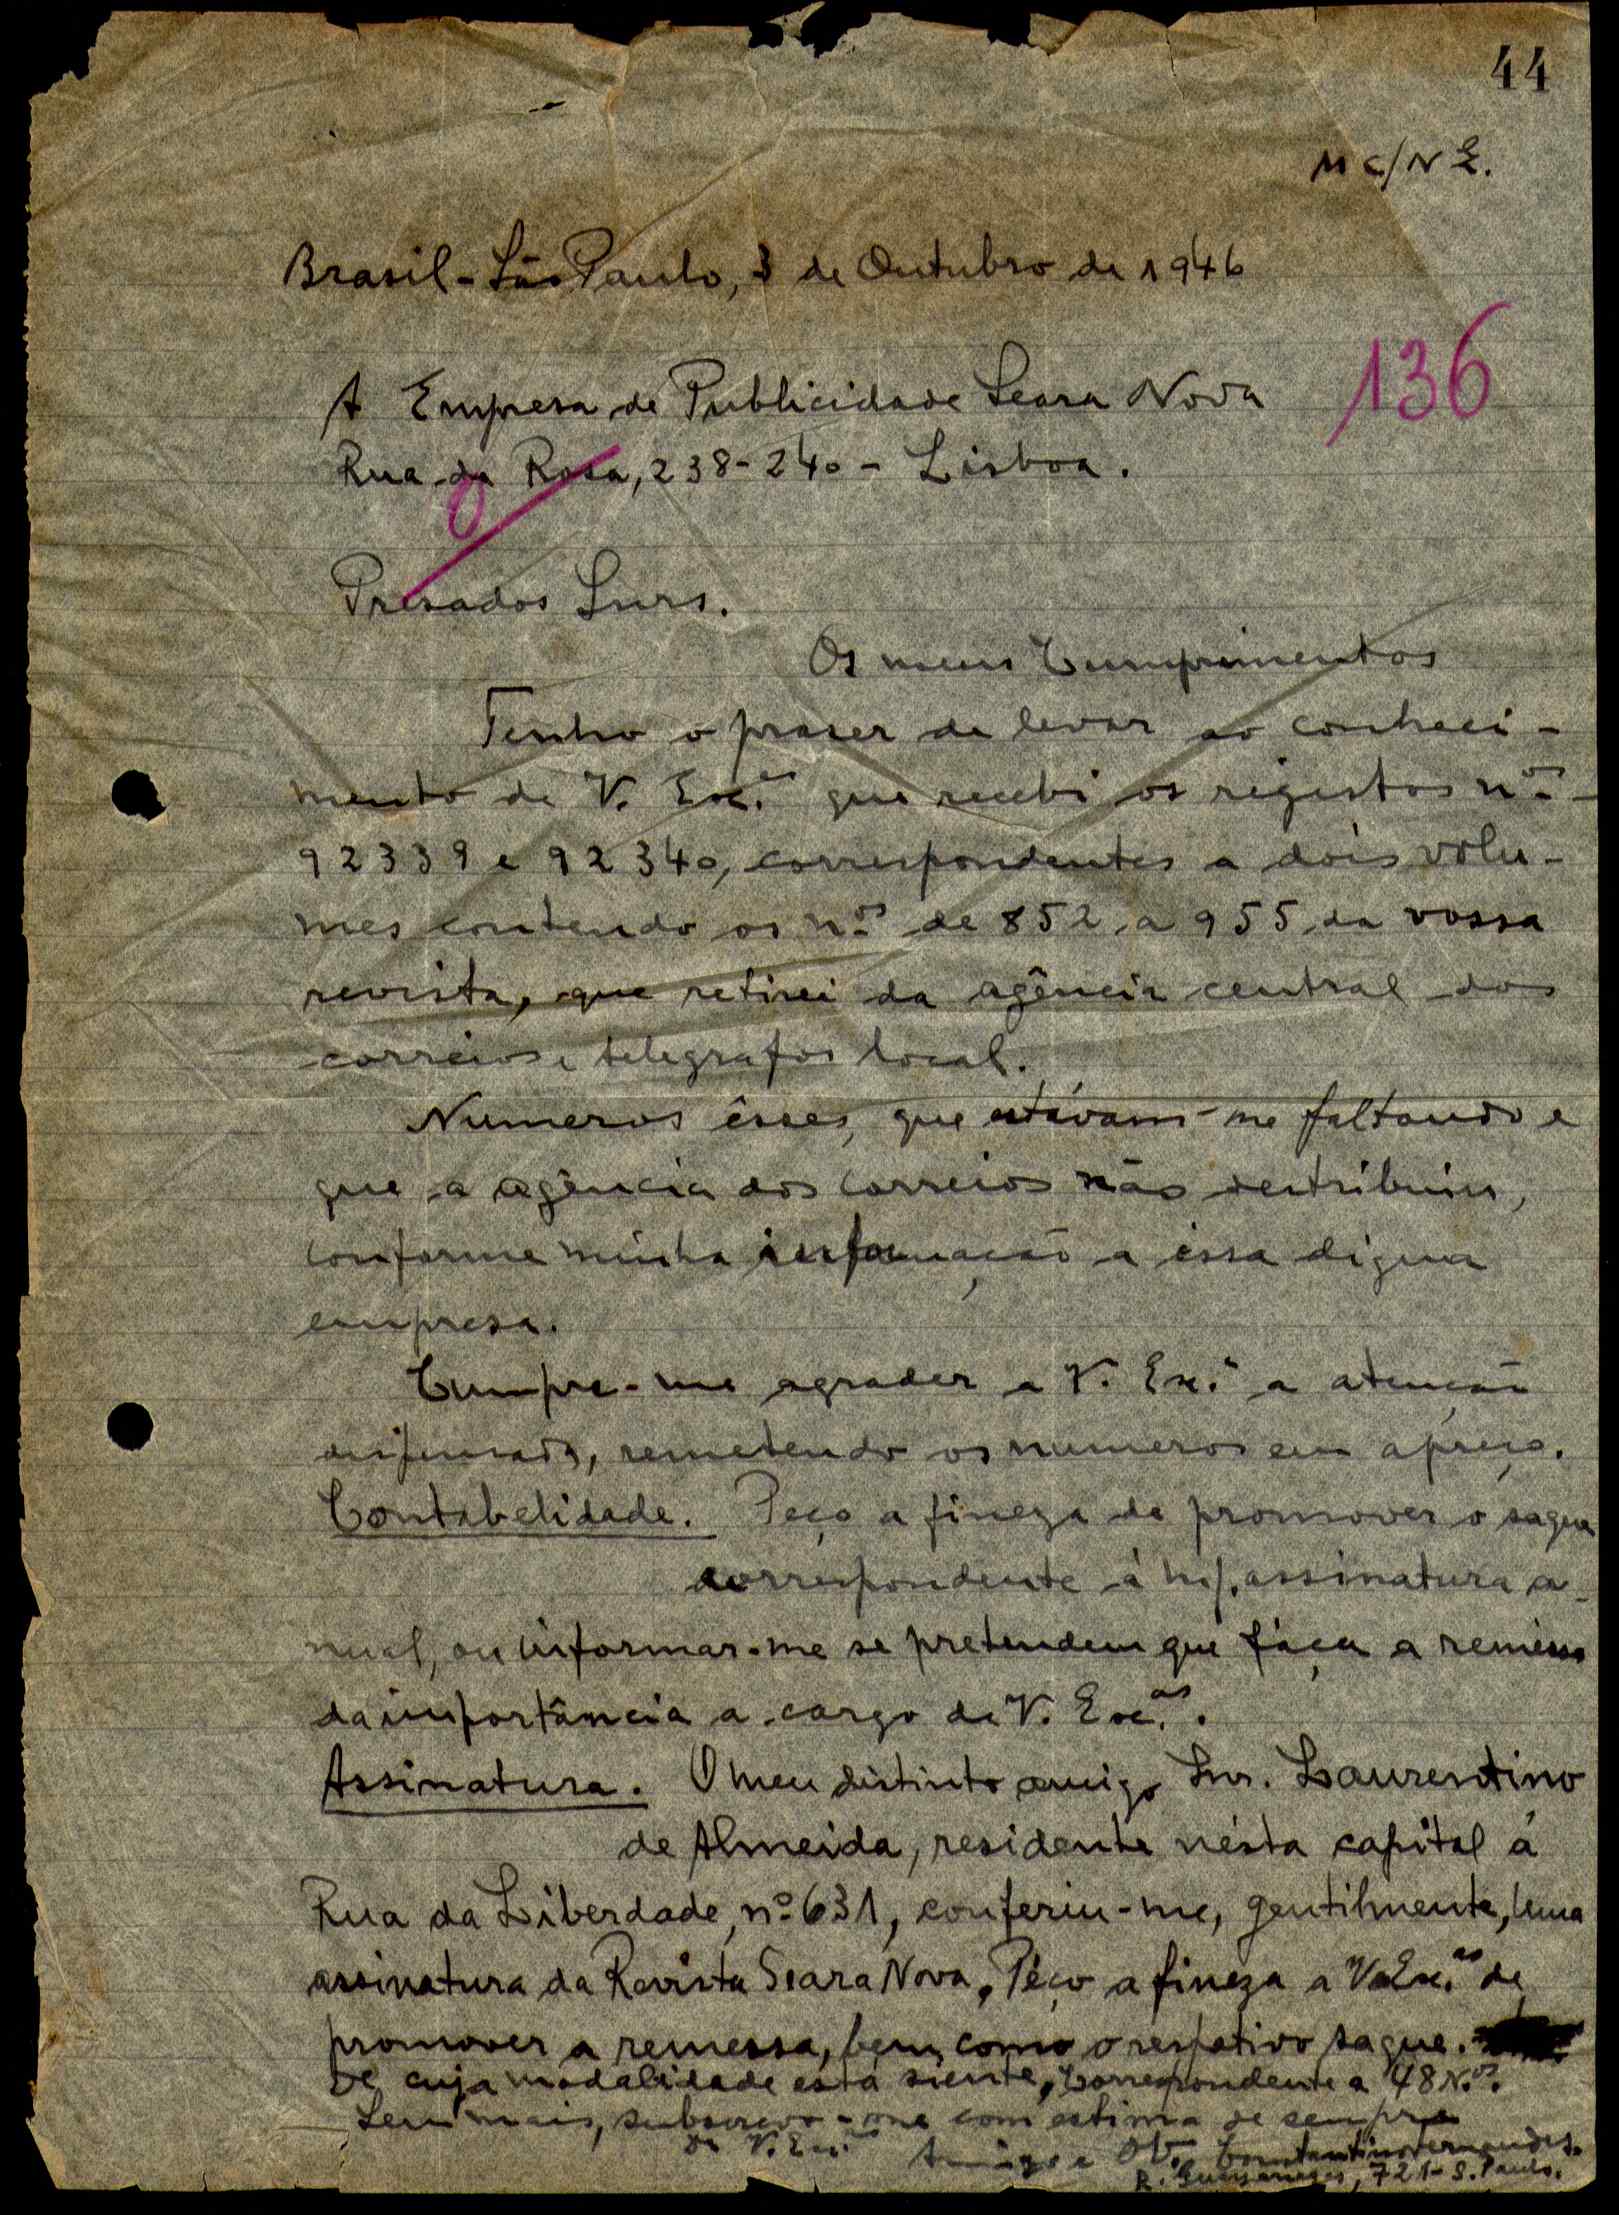 44
M C/N E.
Brasil - São Paulo, 3 de Outubro de 1946
136
A Empresa de Publicidade Seara Nova
Rua da Rosa, 238-240 - Lisboa.
Presados Snrs.
Os meus Cumprimentos
Tenho o praser de levar ao conheci-
mento de V. Exc.as que recebi os registos n.os
92339 e 92340, correspondentes a dois volu-
mes contendo os n.os de 852 a 955 da vossa
revista, que retirei da agência central dos
correios e telegrafos local.
Numeros êsses, que estávam-me faltando e
que a agência dos correios não destribuiu,
conforme minha informação a éssa digna
empresa.
Cumpre-me agrader a V. Ex.as a atenção
dispensada, remetendo os numeros em aprêço.
Contabelidade. Peço a fineza de promover o saque
correspondente á m/. assinatura a-
nual, ou informar-me se pretendem que fáça a remessa
da importância a cargo de V. Exc.as.
Assinatura. O meu distinto amigo Snr. Laurentino
de Almeida, residente nésta capital á
Rua da Liberdade, nº 631, conferiu-me, gentilmente, uma
assinatura da Revista Seara Nova. Péço a fineza a V. Ex.as de
promover a remessa, bem como o respetivo saque.
De cuja modalidade está siente, correspondente a 48 N.os.
Sem mais, subscrevo-me com estima de sempre
De V. Ex.as
Amigo e Ob. Constantino Fernandes.
R. Guaianazes, 721 - S. Paulo.